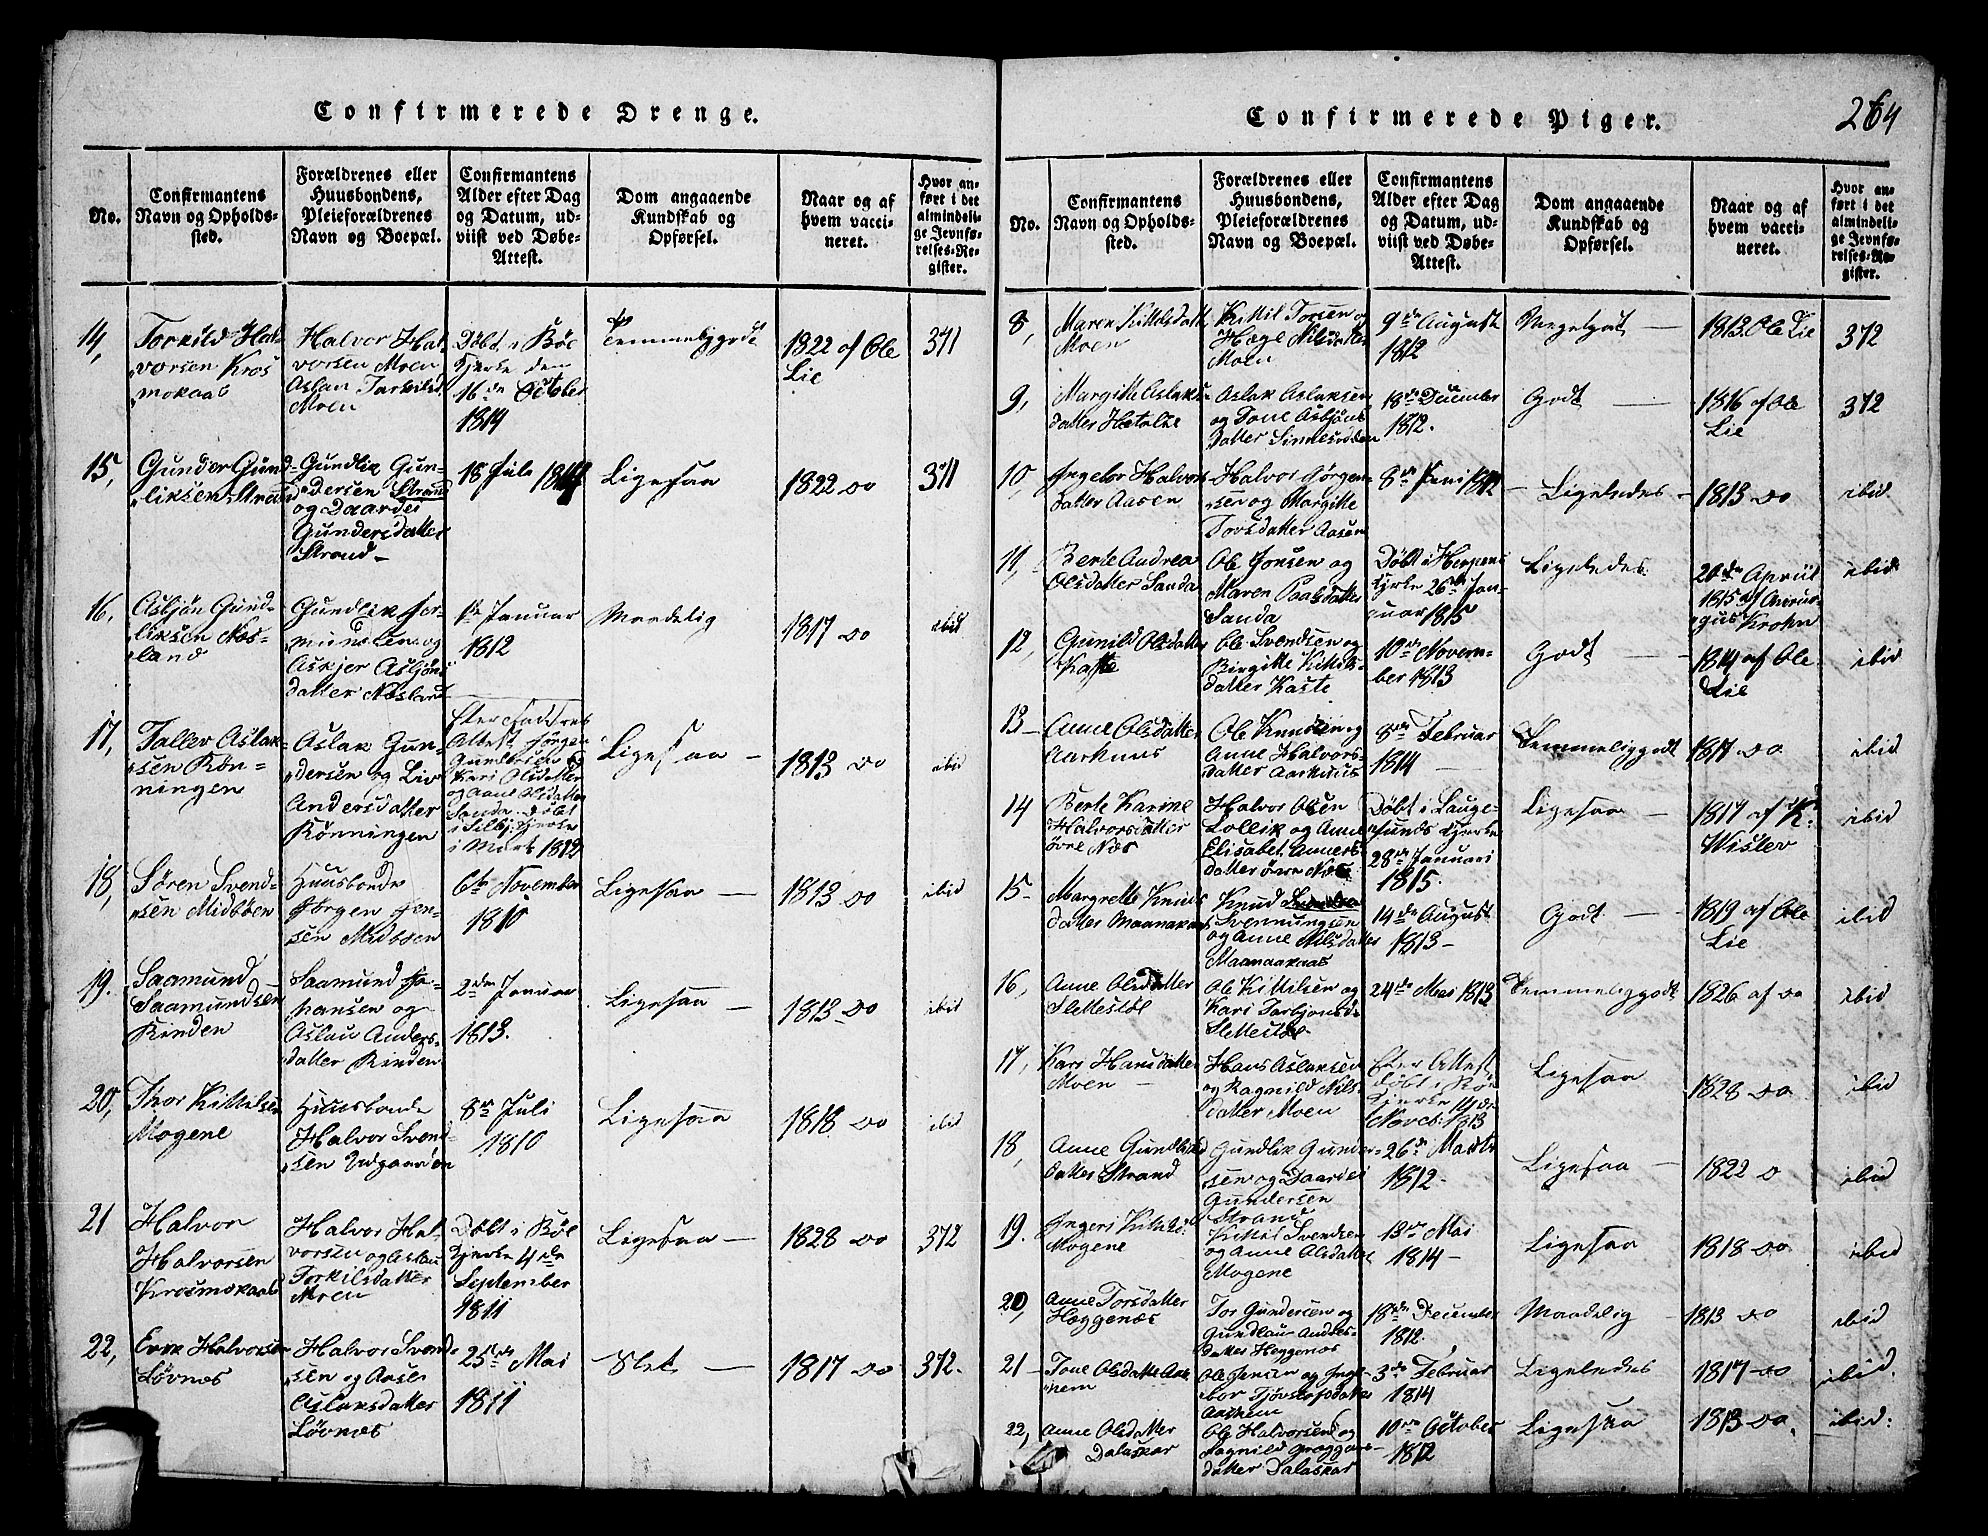 Confirmerede Drenge.
No.
Confirmantens
Navn og Opholds-
sted.
Forældrenes eller
Huusbondens,
Pleieforældrenes
Navn og Boepæl.
Confirmantens
Alder efter Dag
og Datum, ud-
viist ved Døbe-
Attest.
Dom angaaende
Kundskab og
Opførsel.
Naar og af
hvem vacci-
neret.
Hvor an-
ført i det
almindeli-
ge Jevnfø-
relses-Re-
gister.
14,
Torkild Hal-
vorsen Kros
mokaas
Halvor Hal-
vorsen Moen
Aslau Torkilsd
Moen
Döbt i Böe
Kjerke den
16de October
1814
Temmeliggodt
1822 af Ole
Lie
371
15,
Gunder Gund-
liksen Strand
Gundlik Gun-
dersen Strand
og Daardei
Gundersdatter
Strand
18 Julii 1814
Ligesaa
1822 do
371
16,
Asbjön Gund-
liksen Næs-
land
Gundlik
og
Asbjöns
datter Næsland
1ste Januar
1812
Maadelig
1817 do
ibid
17,
Tallev Aslak-
sen Rön-
ningen
Aslak Gun-
dersen og Liv
Andersdatter
Rönningen
Efter Faddres
Attest Jörgen
Gundersen og
Kari Olsdatter
og Anne Olsdatter
Sanda. Döbt
i
i Marts 1812
Ligesaa
1813 do
ibid
18,
Sören Svend-
sen Midböen
Huusbonde
Jörgen Jen-
sen Midböen
6te November
1810
Ligesaa
1813 do
ibid
19.
Saamund
Saamundsen
Rinden
Saamund Jo-
hansen og
Aslau Anders-
datter Rinden
2den Januar
1813.
Ligesaa
1813 do
ibid
20,
Thor Kittelsen
Mogene
Huusbonde
Halvor Svend-
sen
8de Juli
1810
Ligesaa
1818 do
ibid
21
Halvor
Halvorsen
Krosmokaas
Halvor Hal-
vorsen og Aslau
Torkilsdatter
Moen
Döbt i Böe
Kjerke 4de
September
1811
Ligesaa
1828 do
372
22,
Even Halvorsen
Lövnæs
Halvor Svend-
sen og Aase
Aslaksdatter
Lövnæs
25de Mai
1811
Slet
1817 do
372.
Confirmerede Piger.
264
No.
Confirmantens
Navn og Opholds-
sted.
Forældrenes eller
Huusbondens,
Pleieforældrenes
Navn og Boepæl.
Confirmantens
Alder efter Dag
og Datum, ud-
viist ved Døbe-
Attest.
Dom angaaende
Kundskab og
Opførsel.
Naar og af
hvem vacci-
neret.
Hvor an-
ført i det
almindeli-
ge Jevnfø-
relses-Re-
gister.
8,
Maren Kittilsdatter
Moen
Kittil Torsen og
Hæge Nilsdatter
Moen
9de August
1812
Megetgot
1813 Ole Lie
372
9,
Margitte Aslaks-
datter Hetolte
Aslak Aslaksen
og Tone Asbjöns
datter Sinnesodden
18de December
1812.
Godt
1816 af Ole
Lie
372
10,
Ingebor Halvors
datter Aasen
Halvor Jörgen-
sen og Margitte
Torsdatter Aasen
8de Juni 1812
Ligeledes
1813 do
ibid
11,
Berte Andrea
Olsdatter Sanda
Ole Jonsen og
Maren Paalsdatter
Sanda
Döbt i
Kjerke 26de Jan-
uar 1815
Ligeledes
20de Apriil
1815 af
Krohn
ibid
12,
Gunild Olsdatter
Kaste
Ole Svendsen og
Birgitte Kittils-
datter Kaste
10de Novem-
ber 1813
Godt
1814 af Ole
Lie
ibid
13
Anne Olsdatter
Aarhuus
Ole Knudsen og
Anne Halvors-
datter Aarhuus
8de Februar
1814
Temmeliggodt
1817 do
ibid
14
Berte Karine
Halvorsdatter
övre Næs
Halvor Olsen
Lollik og Anne
Elisabet
datter övre Næs
Döbt i Lange-
sunds Kjerke
28de Januari
1815.
Ligesaa
1817 af K.
Wislev
ibid
15
Margrette Knuds
datter Maanakaas
Knud
Svennungsen
og Anne Nilsdatter
Maanakaas
14de August
1813
Godt
1819 af Ole
Lie
ibid
16,
Anne Olsdatter
Slettestöl
Ole Kittilsen og
Kari Torbjönsd.
Slettestöl
24de Mai 1813
Temmeliggodt
1826 af do
ibid
17,
Kari Hansdatter
Moen
Hans Aslaksen
og Ragnild Nils
datter Moen
Efter Attest
döbt i Böe
Kjerke 14de
Novebr 1813
Ligesaa
1828 do
ibid
18,
Anne Gundliks
datter Strand
Gundlik Gunder-
sen og Daardei
Gundersen
Strand
26de Martii
1812
Ligesaa
1822 do
ibid
19.
Ingeri Kittilsd
Mogene
Kittil Svendsen
og Anne Olsdatter
Mogene
13de Mai
1814
Ligesaa
1818 do
ibid
20,
Anne Torsdatter
Heggenæs
Tor Gundersen og
Gundlau Andres-
datter Heggenæs
18de December
1812.
Maadelig
1813 do
ibid
21
Tone Olsdatter Aas
hem
Ole Jensen og Inge-
bor
Aashem
3de Februar
1814
Ligeledes
1817 do
ibid.
22,
Anne Olsdatter
Dalaskar
Ole Halvorsen og
Ragnild Greggars-
datter Dalaskar
10de October
1812
Ligesaa
1813 do
ibid.